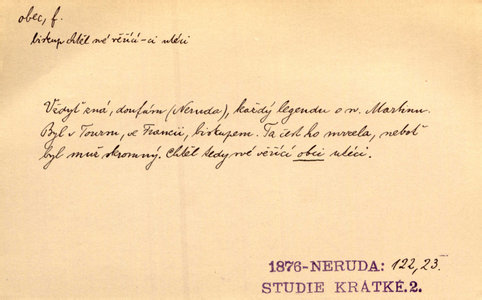 obec, f.
biskup chtěl své věřící -ci utéci
Vždyť zná, doufám (Neruda), každý legendu o sv. Martinu.
Byl v Touru, ve Francii, biskupem. Ta čest ho mrzela, neboť
byl muž skromný. Chtěl tedy své věřící obci utéci.
1876-NERUDA: 122,23.
STUDIE KRÁTKÉ.2.